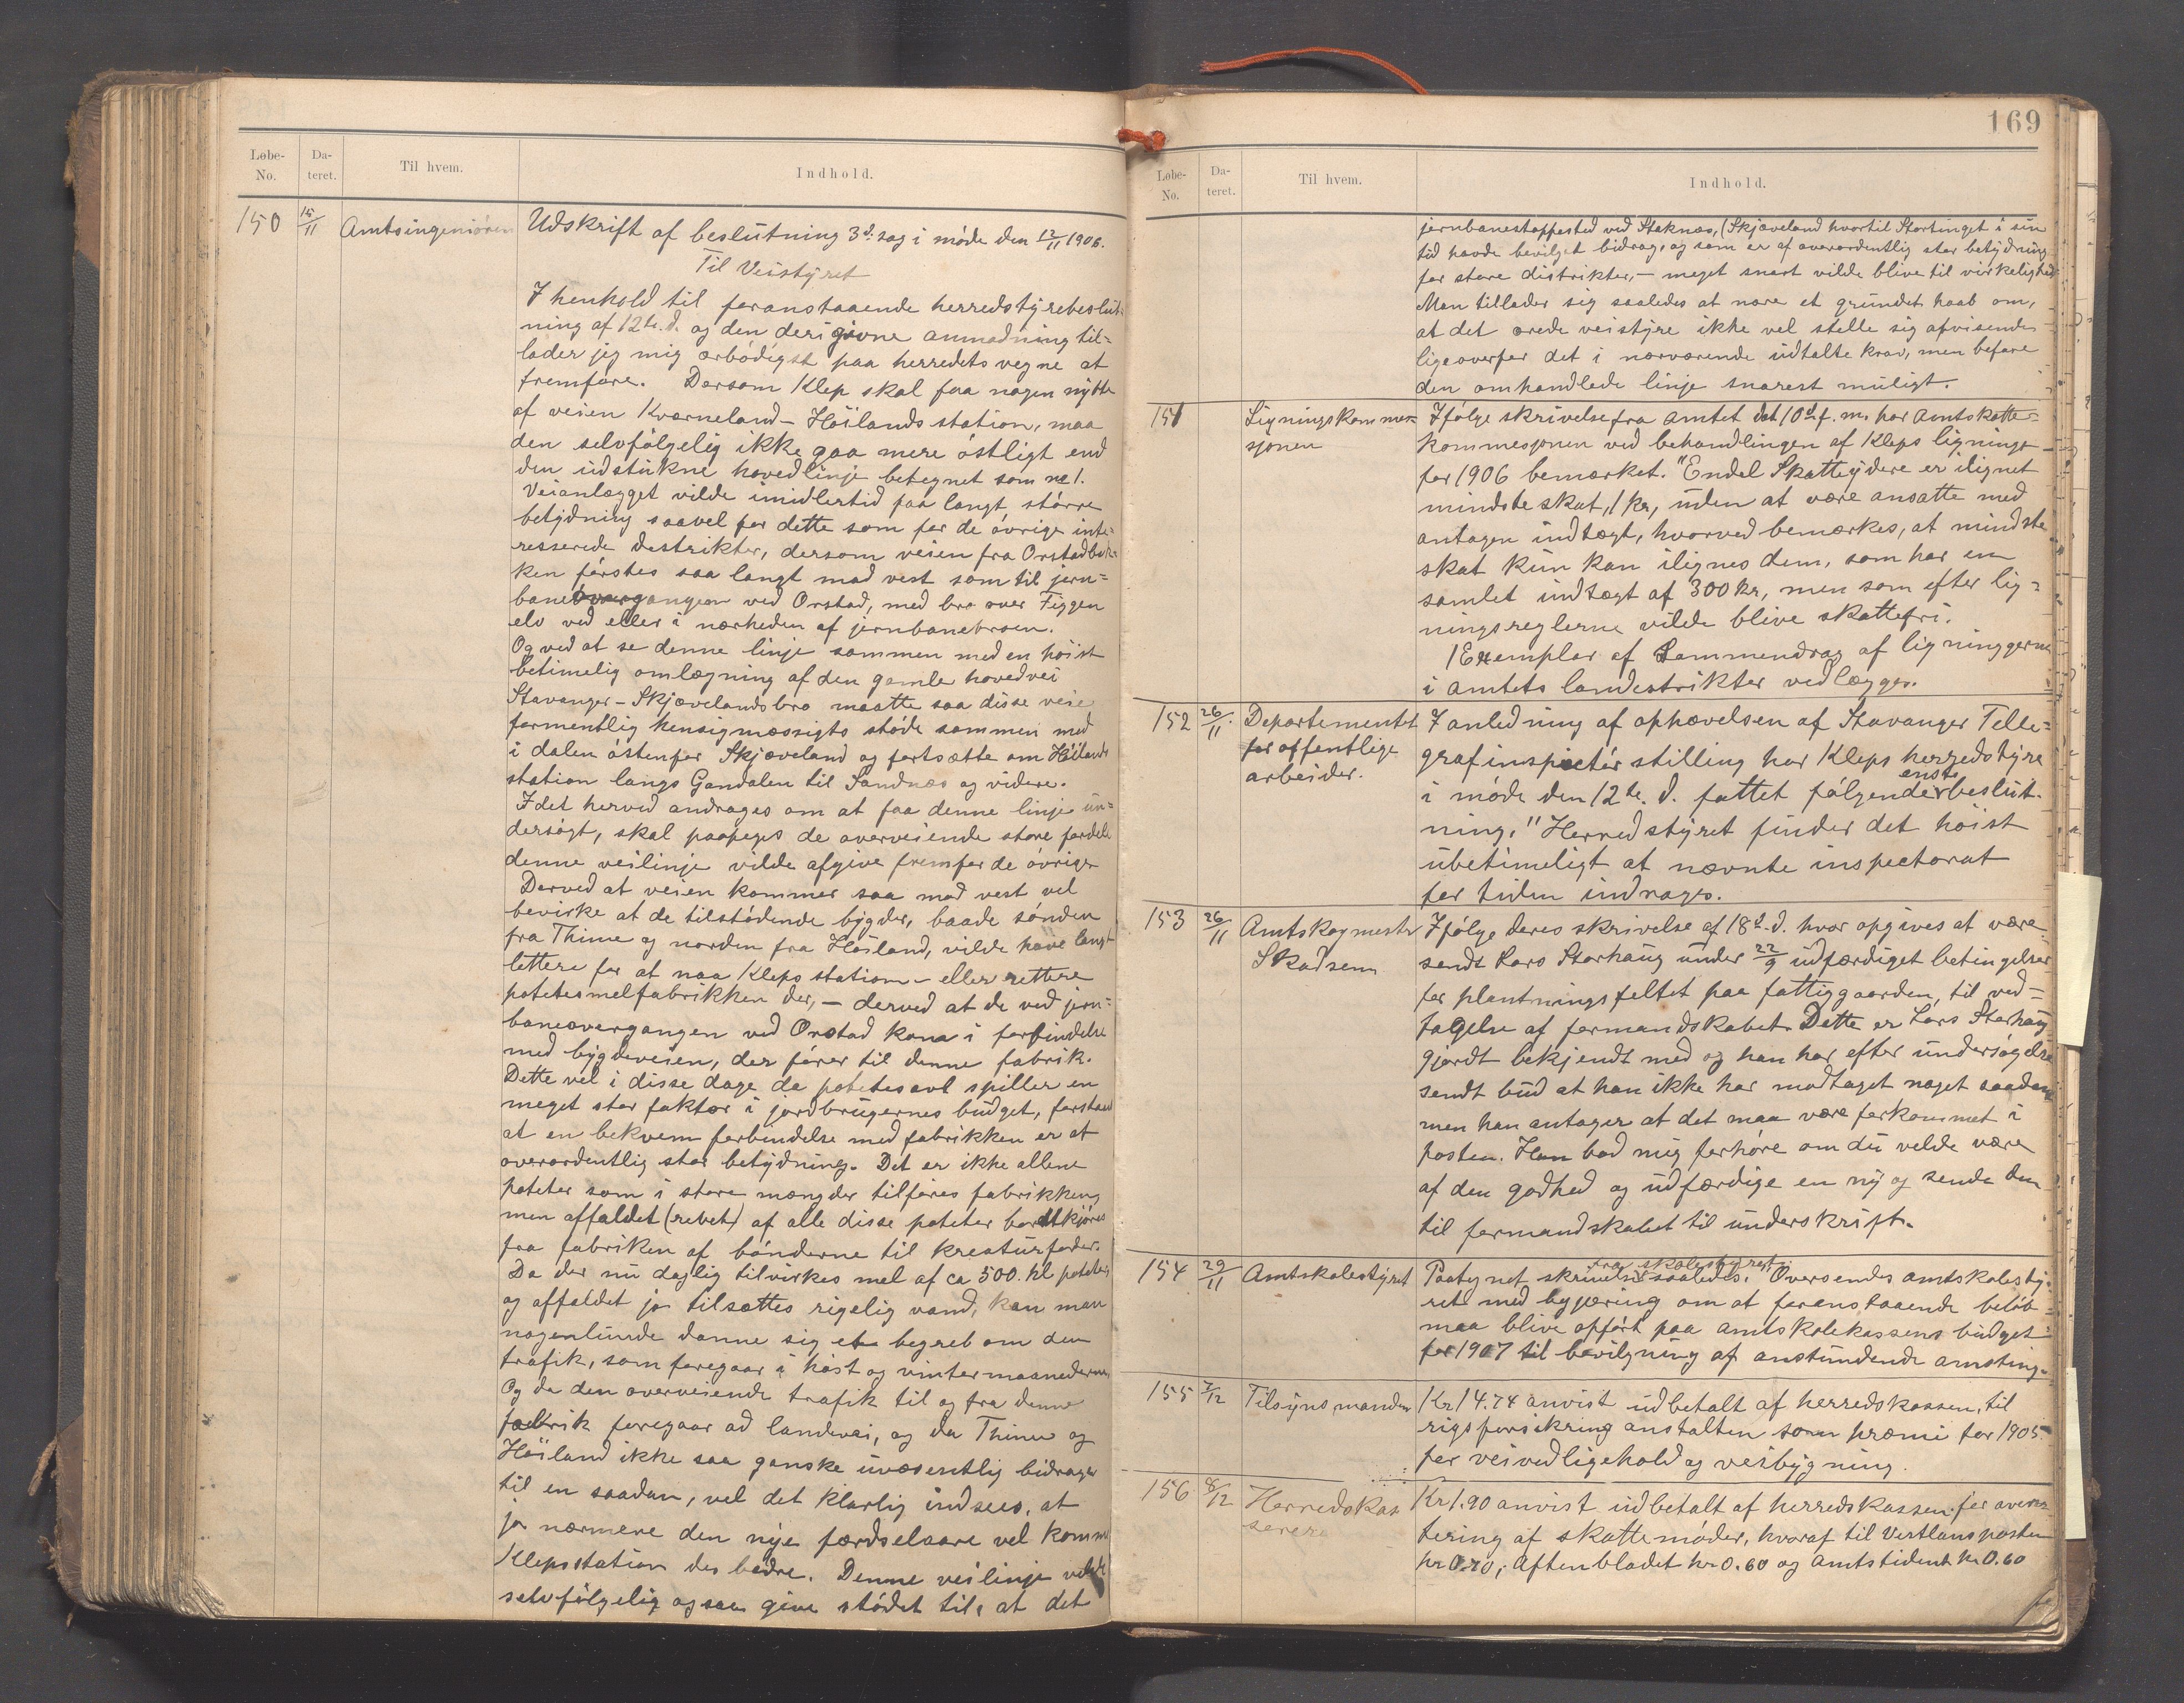 Løbe-No. Da-teret. Til hvem. Indhold.
150 15/11 Amtsingeniøren Udskrift af beslutning 3d. sag i møde den 12/11 1906.
Til Veistyret
I henhold til foranstaaende herredstyrebeslut-
ning af 12te. d. og den deri givne anmodning til=
lader jeg mig ærbødigst paa herredets vegne at
fremføre. Dersom Klep skal faa nogen nytte
af veien Kværneland - Höilands station, maa
den selvfølgelig ikke gaa mere østligt end
den udstukne hovedlinje betegnet som no 1.
Veianlægget vilde imidlertid faa langt større
betydning saavel for dette som for de øvrige inte-
resserede destrikter, dersom veien fra Orstadbak-
ken førstes saa langt mod vest som til jern=
baneovergangen ved Orstad, med bro over Figgen
elv ved eller i nærheden af jernbanebroen.
Og ved at se denne linje sammen med en høist
betimelig omlægning af den gamle hovedvei
Stavanger - Skjævelandsbro maatte saa disse veie
formentlig hensigmæssigts støde sammen med
i dalen østenfor Skjæveland og fortsætte om Höilands
station langs Gandalen til Sandnæs og videre.
Idet herved andrages om at faa denne linje un=
dersøgt, skal paapeges de overveiende store fordele
denne veilinje vilde afgive fremfor de øvrige
Derved at veien kommer saa mod vest vel
bevirke at de tilstødende bygder, baade sønden
fra Thime og norden fra Höiland, vilde have langt
lettere for at naa Kleps station - eller rettere
potetesmelfabrikken der, - derved at de ved jern=
baneovergangen ved Orstad kom i forbindelse
med bygdeveien, der fører til denne fabrik.
Dette vel i disse dage da potetesavl spiller en
meget stor faktor i jordbrugernes budget, forstaas
at en bekvem forbindelse med fabrikken er af
overordentlig stor betydning. Det er ikke allene
poteter som i store mængder tilføres fabrikken,
men affaldet (revet) af alle disse poteter bortkjøres
fra fabriken af bønderne til kreaturfoder.
Da der nu daglig tilvirkes mel af ca 500. hl poteter
og affaldet jo tilsættes rigelig vand, kan man
nogenlunde danne sig et begreb om den
trafik, som foregaar i høst og vintermaanederne,
Og da den overveiende trafik til og fra denne
fabrik foregaar ad landevei, og da Thime og
Höiland ikke saa ganske uvæsentlig bidrager
til en saadan, vel det klarlig indsees, at
jo nærmere den nye færdselaare vel komme
Klepsstation des bedre. Denne veilinje vilde
selvfølgelig ogsaa give stødet til, at det
169
Løbe-No. Da-teret. Til hvem. Indhold.
jernbanestoppested ved Staknæs, (Skjæveland hvortil Stortinget i sin
tid havde bevilget bidrag, og som er af overordentlig stor betydning
for store distrikter, - meget snart vilde blive til virkelighed
Man tillader sig saaledes at nære et grundet haab om,
at det ærede veistyre ikke vel stelle sig afvisende
ligeoverfor det i nærværende udtalte krav, men befare
den omhandlede linje snarest muligt.
151 Ligningskommes- Ifølge skrivelse fra amtet dat 10d f. m. har Amtskatte=
sjonen kommesjonen ved behandlingen af Kleps ligninger
for 1906 bemærket. "Endel Skatteydere er ilignet
mindste skat, 1 kr, uden at være ansatte med
antagen indtægt, hvorved bemærkes, at mindste
skat kun kan ilignes dem, som har en
samlet indtægt af 300 kr, men som efter lig=
ningsreglerne vilde blive skattefri.
1 Exemplar af Sammendrag af ligninggerne
i amtets landestrikter vedlægges.
152 26/11. Departementet I anledning af ophævelsen af Stavanger Telle=
for offentlige grafinspictør stilling har Kleps herredstyre
arbeider. i møde den 12te. d. fattet følgende enst beslut-
ning. "Herredstyret finder det høist
ubetimeligt at nævnte inspectorat
for tiden indrages.
153 26/11 Amtskogmester Ifølge deres skrivelse af 18d. d. hvor opgives at være
Skadsem sendt Lars Storhaug under 22/9 udfærdiget betingelser
for plantningsfeltet paa fattiggaarden, til ved=
tagelse af formandskabet. Dette er Lars Storhaug
gjordt bekjendt med og han har efter undersøgelse
sendt bud at han ikke har modtaget noget saadant
men han antager at det maa være forkommet i
posten. Han bad mig forhøre om du velde være
af den godhed og udfærdige en ny og sende den
til formandskabet til underskrift.
154 29/11 Amtskolestyret Paategnet skrivelse fra skolestyret saaledes. "Oversendes amtskolesty-
ret med begjæring om at foranstaaende beløb
maa blive opført paa amtskolekassens budget
for 1907 til bevilgning af anstundende amsting.
155 7/12 Tilsynsmanden Kr 14.74 anvist udbetalt af herredskassen, til
rigsforsikring anstalten som præmi for 1905
for veivedligehold og veibygning.
156 8/12 Herredskas Kr 1.90 anvist udbetalt af herredskassen for averr
serer tering af skattemøder, hvoraf til Vestlansposten
kr 0.70, Aftenbladet kr 0.60 og Amtstident kr 0.60